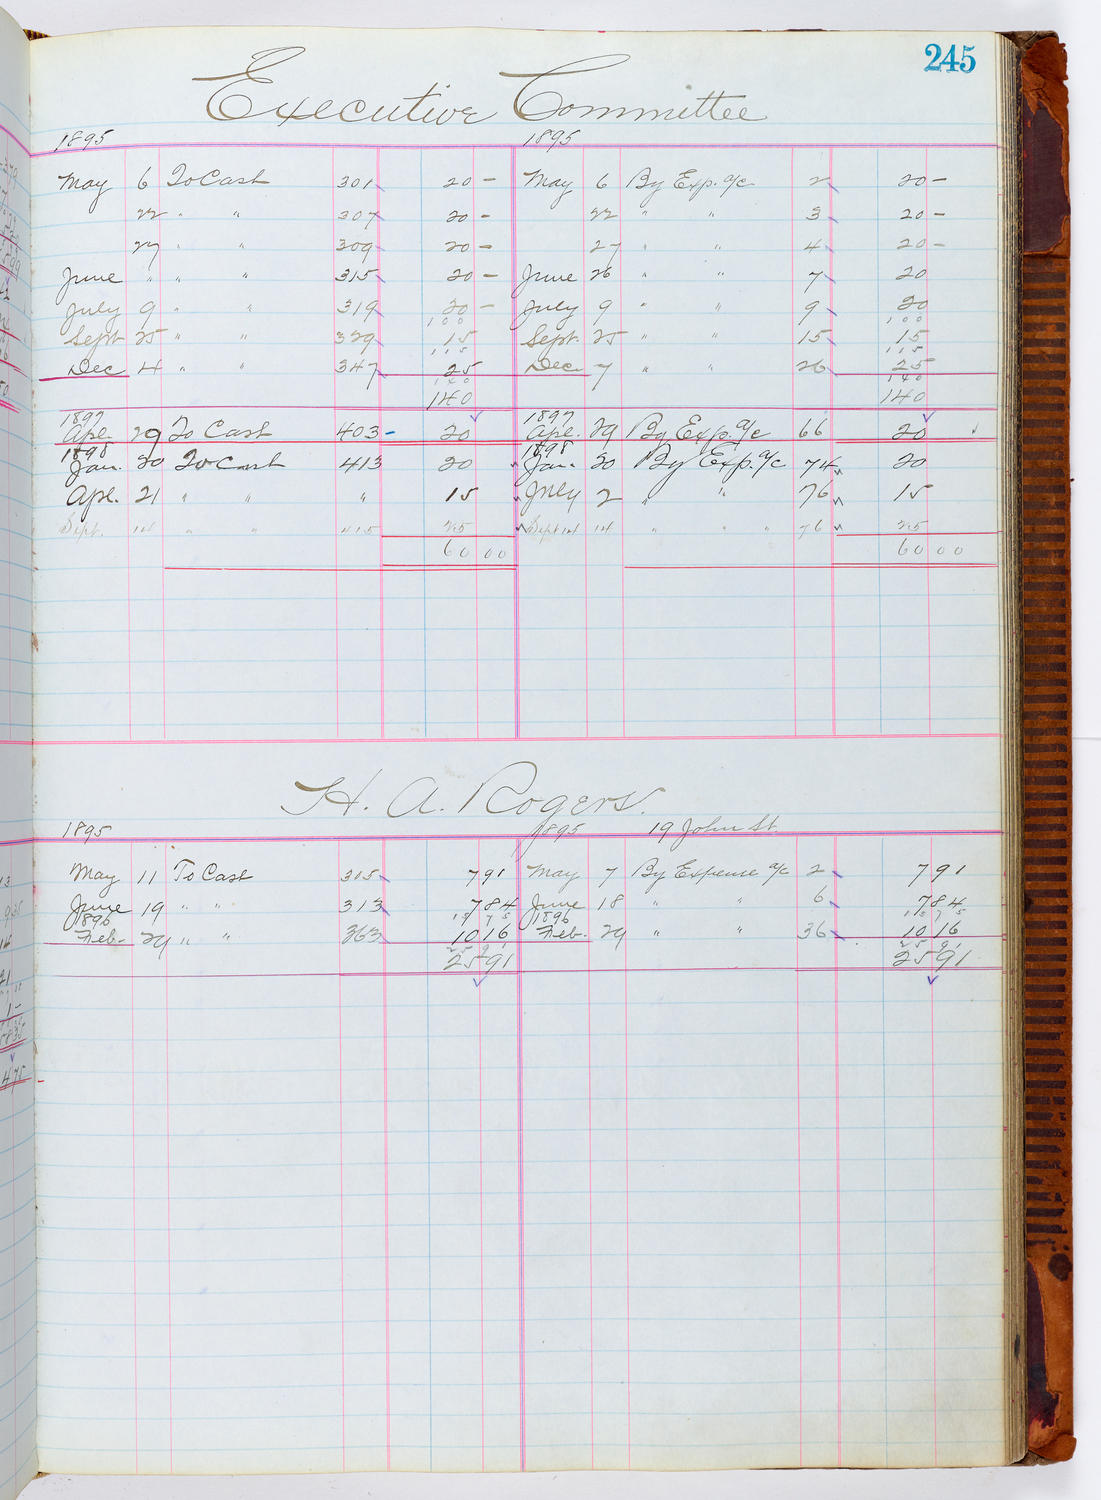 245
Executive Committee
1895 1895
May 6 To Cash 301 20 - May 6 By Exp. a/c 2 20 -
22 " " 307 20 - 22 " " 3 20 -
27 " " 309 20 - 27 " " 4 20 -
June " " " 315 20 - June 26 " " 7 20
July 9 " " 319 20 - July 9 " " 9 20
100 100
Sept 25 " " 329 15 Sept. 25 " " 15 15
115 115
Dec 4 " " 347 25 Dec. 7 " " 26 25
140 140
140 140
1897 1897
Apl. 29 To Cash 403 20 Apl. 29 By Exp. a/c 66 20
1898 1898
Jan. 20 To Cash 413 20 Jan. 20 By Exp. a/c 74 20
Apl. 21 " " " 15 July 2 " " 76 15
Sept. 14 " " 415 25 Sept 14 " " " 76 25
60 00 60 00
H. A. Rogers.
1895 1895 19 John St.
May 11 To Cash 305 7 91 May 7 By Expense a/c 2 7 91
June 19 " " 313 7 84 June 18 " " 6 7 84
1896 15 75 1896 15 75
Feb. 29 " " 363 10 16 Feb. 29 " " 36 10 16
25 91 25 91
25 91 25 91